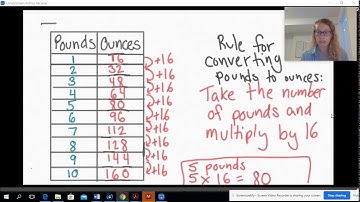 Pounds Ounces
1 16
2 32
3 48
4 64
5 80
6 96
7 112
8 128
9 144
10 160
+16
+16
+16
+16
+16
+16
+16
+16
+16
Rule for
converting
pounds to ounces:
Take the number
of pounds and
multiply by 16
5 pounds
5 x 16 = 80